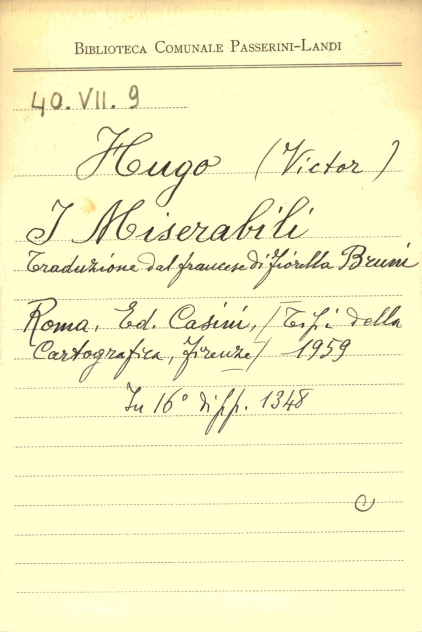 BIBLIOTECA COMUNALE PASSERINI-LANDI
40. VII. 9
Hugo (Victor)
I Miserabili
Traduzione dal francese di Fiorella Bruni
Roma, Ed. Casini, /Tipi della
Cartografica, Firenze/ 1959
In 16° di pp. 1348